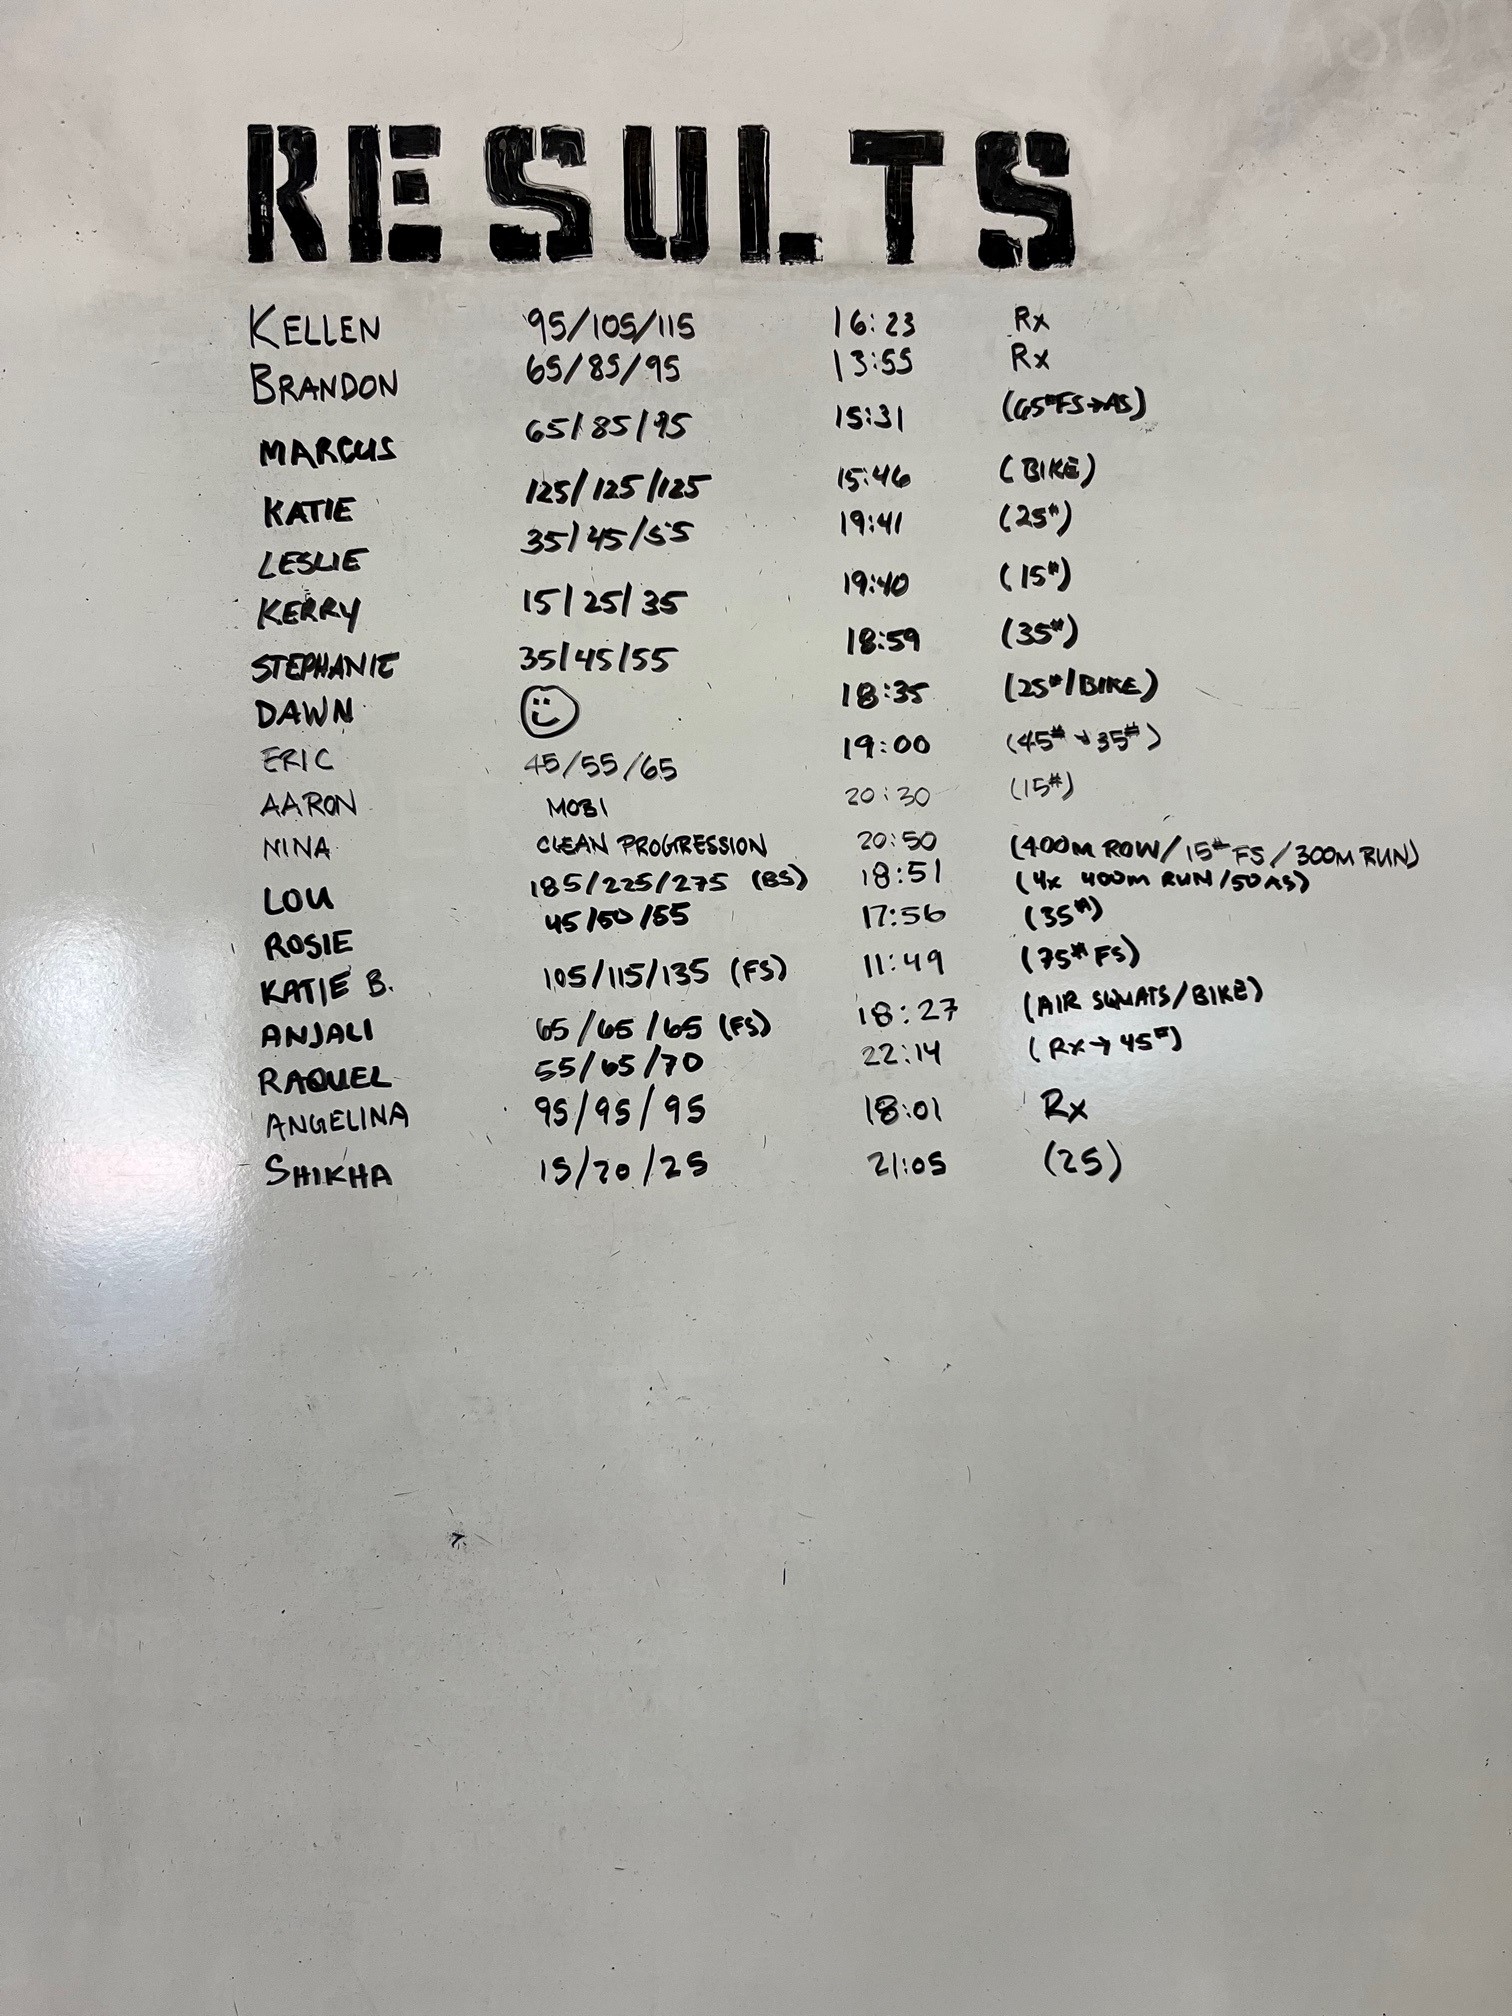 RESULTS
KELLEN 95/105/115 16:23 Rx
BRANDON 65/85/95 13:55 Rx
MARCUS 65/85/95 15:31 (65#FS→AS)
KATIE 125/125/125 15:46 (BIKE)
LESLIE 35/45/55 19:41 (25#)
KERRY 15/25/35 19:40 (15#)
STEPHANIE 35/45/55 18:59 (35#)
DAWN 18:35 (25#/BIKE)
ERIC 45/55/65 19:00 (45# → 35#)
AARON MOBI 20:30 (15#)
NINA CLEAN PROGRESSION 20:50 (400M ROW/15# FS/300M RUN)
LOU 185/225/275 (BS) 18:51 (4x 400M RUN/50 AS)
ROSIE 45/50/55 17:56 (35#)
KATIE B. 105/115/135 (FS) 11:49 (75# FS)
ANJALI 65/65/65 (FS) 18:27 (AIR SQUATS/BIKE)
RAQUEL 55/65/70 22:14 (Rx→45#)
ANGELINA 95/95/95 18:01 Rx
SHIKHA 15/20/25 21:05 (25)